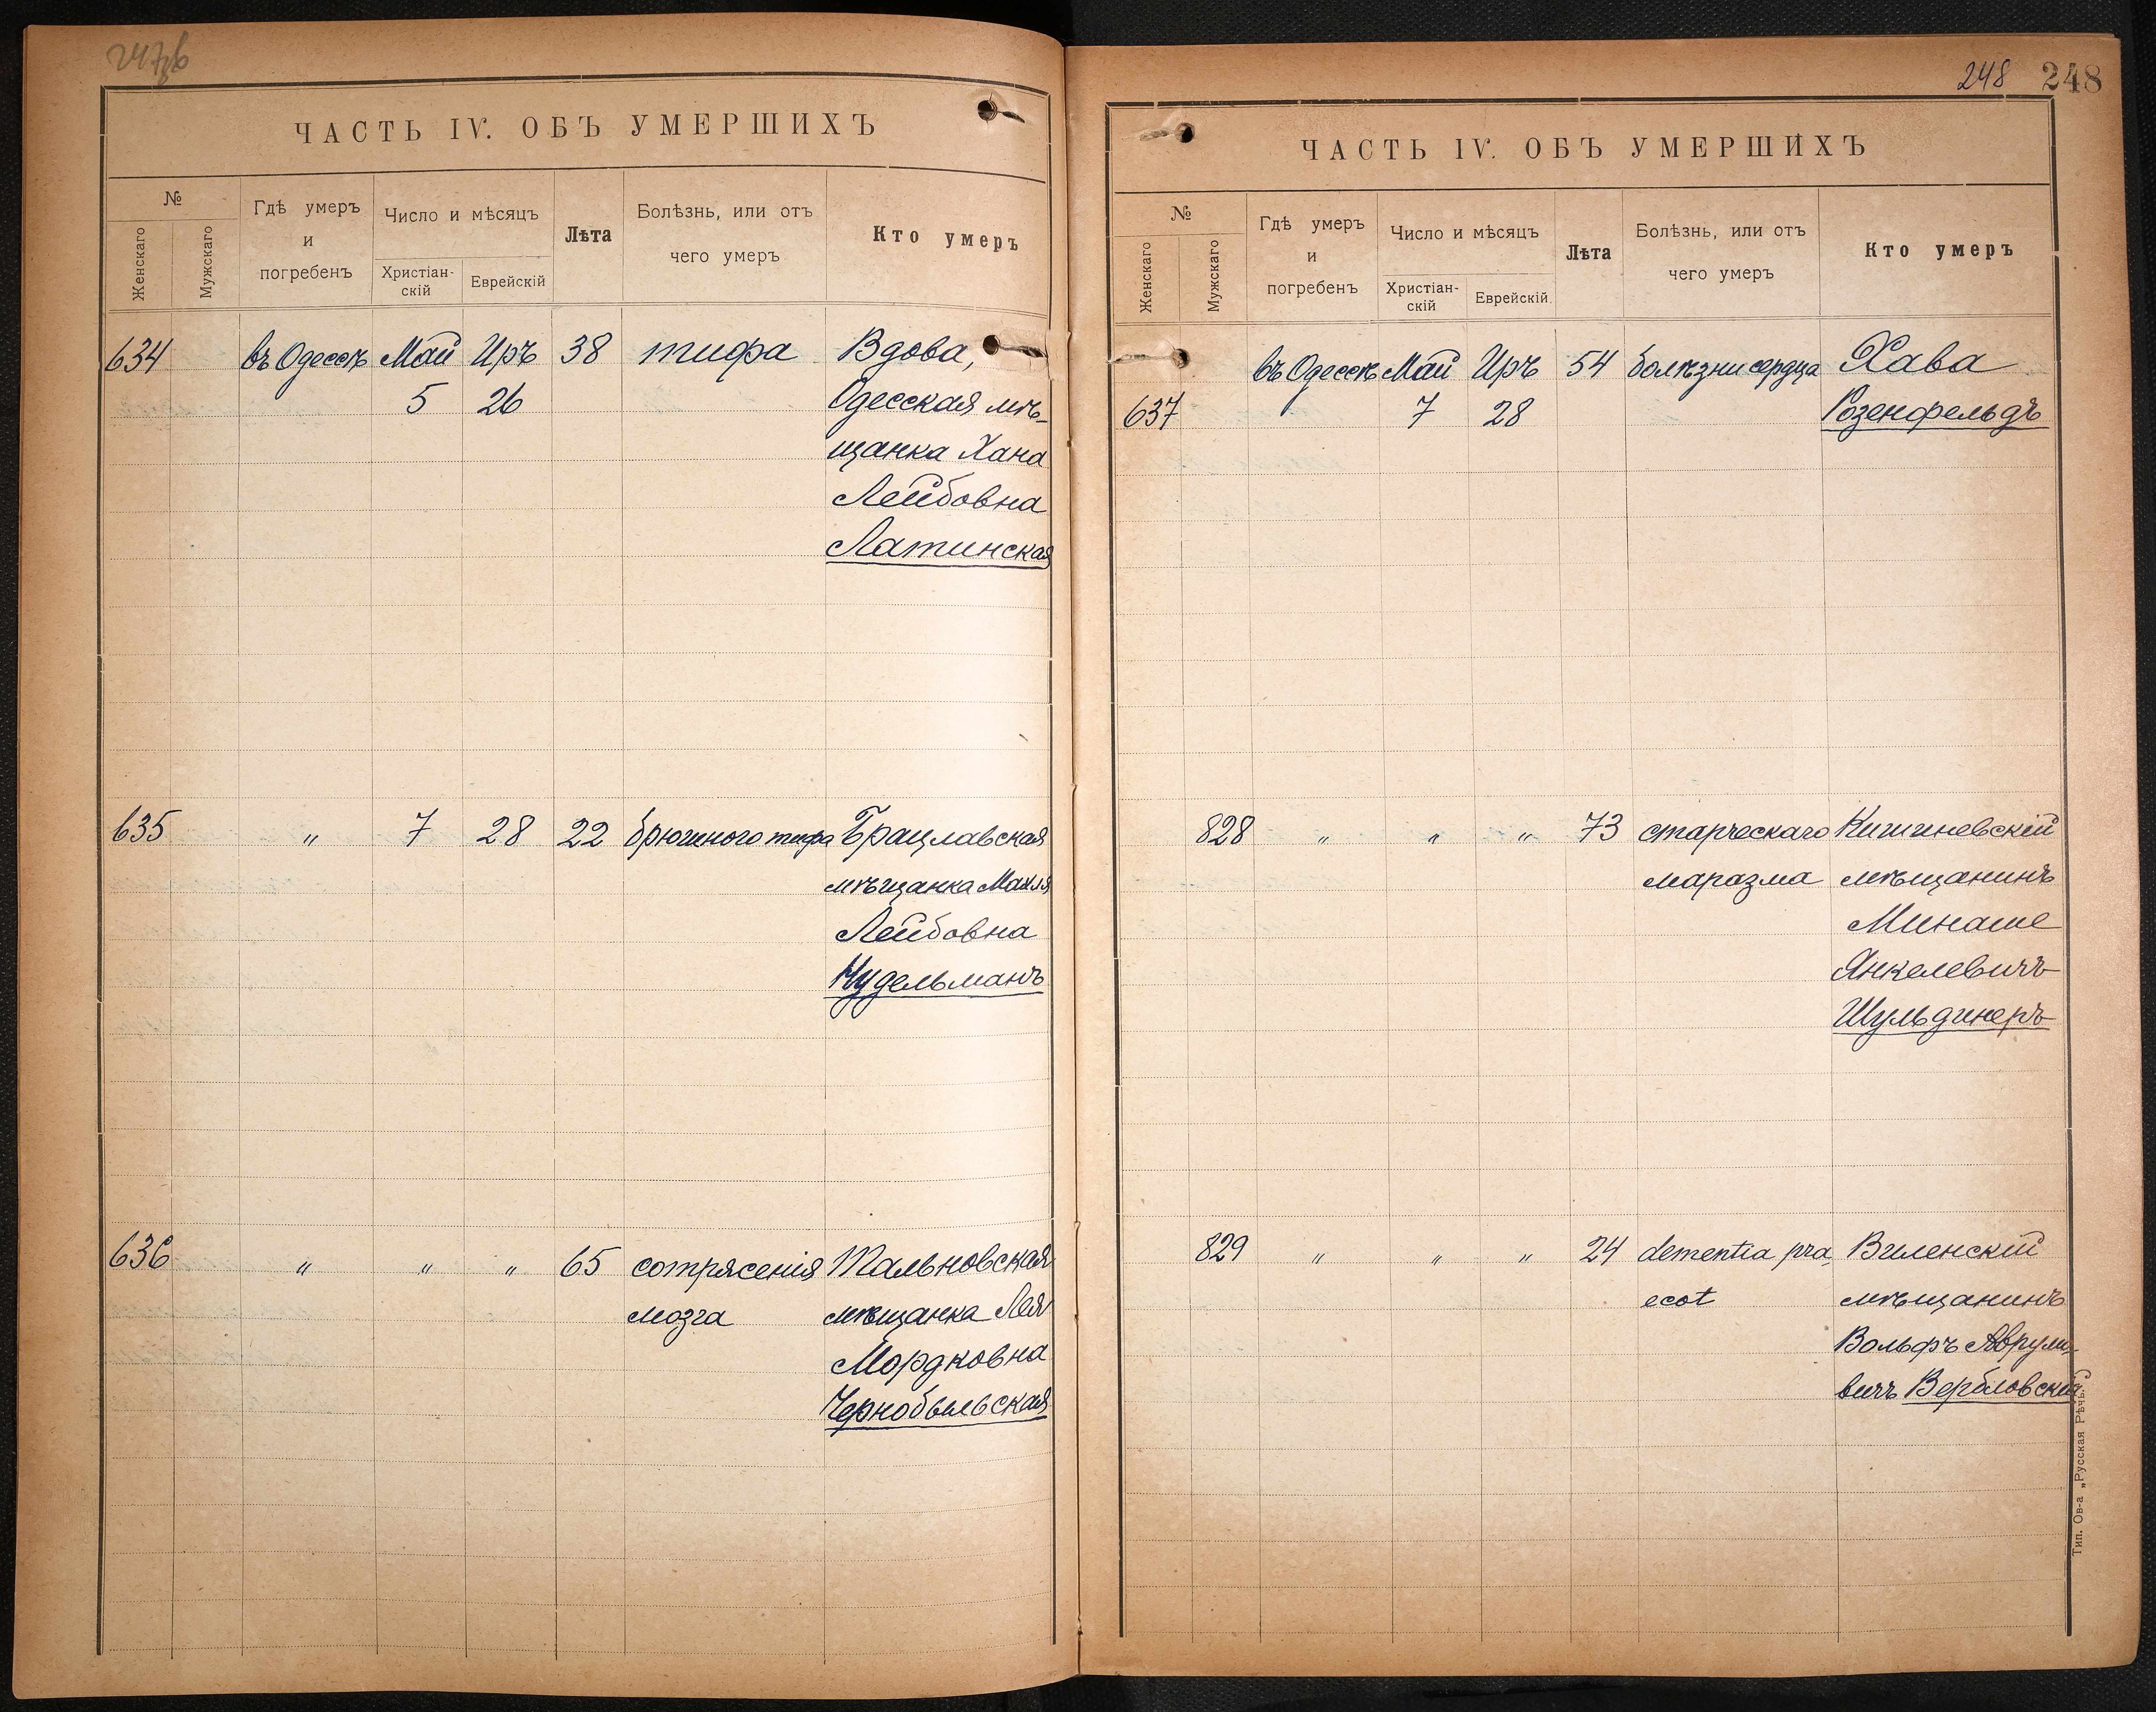 248 248
ЧАСТЬ IV. ОБЪ УМЕРШИХЪ
№
Женскаго
Мужскаго
Гдѣ умеръ
и
погребенъ
Число и мѣсяцъ
Христіан-
скій
Еврейскій
Лѣта
Болѣзнь, или отъ
чего умеръ
Кто умеръ
634 въ Одессѣ Май Иръ 38 тифа Вдова,
5 26 Одесская мѣ-
щанка Хана
Лейбовна
Латинская
635 " 7 28 22 брюшного тифа Брацлавская
мѣщанка Махля
Лейбовна
Нудельманъ
636 " " " 65 сотрясенія Тальновская
мозга мѣщанка Лея
Мордковна
Чернобыльская
ЧАСТЬ IV. ОБЪ УМЕРШИХЪ
№
Женскаго
Мужскаго
Гдѣ умеръ
и
погребенъ
Число и мѣсяцъ
Христіан-
скій
Еврейскій
Лѣта
Болѣзнь, или отъ
чего умеръ
Кто умеръ
въ Одессѣ Май Иръ 54 болѣзни сердца Хава
637 7 28 Розенфельдъ
828 " " " 73 старческаго Кишиневскій
маразма мѣщанинъ
Минаше
Янкелевичъ
Шульдинеръ
829 " " " 24 dementia pra- Виленскій
ecot мѣщанинъ
Вольфъ Аврумо-
вичъ Верблoвскій
Тип. Ов-а „Русская Рѣчь."